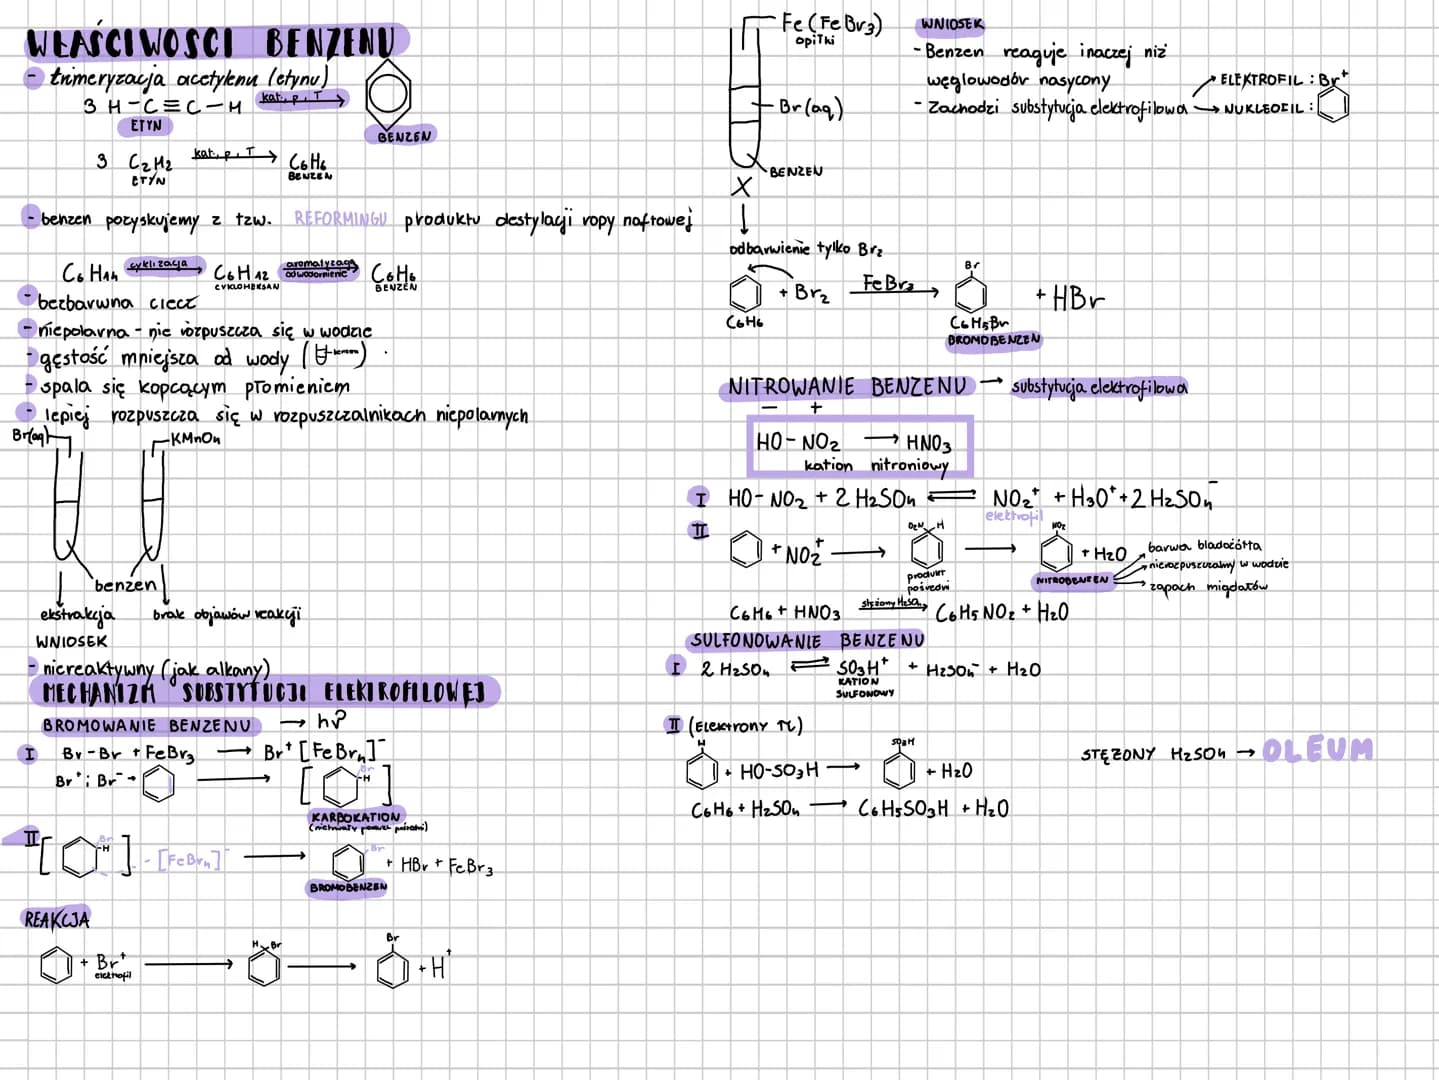 WŁAŚCIWOSCI BENZENU
- trimeryzacja acetylenu (etynu)
3 H-C≡C-H kat., p, T →
ETYN
BENZEN
3 C2H2 kat., p, T → C6H6
ETYN BENZEN
- benzen pozyskujemy z tzw. REFORMINGU produktu destylacji ropy naftowej
C6H14 cyklizacja → C6H12 aromatyzacja odwodornienie → C6H6
CYKLOHEKSAN BENZEN
- bezbarwna ciecz
- niepolarna - nie rozpuszcza się w wodzie
- gęstość mniejsza od wody (benzen)
- spala się kopcącym płomieniem
- lepiej rozpuszcza się w rozpuszczalnikach niepolarnych
Br(aq) KMnO4
benzen
ekstrakcja brak objawów reakcji
WNIOSEK
- niereaktywny (jak alkany)
MECHANIZM SUBSTYTUCJI ELEKTROFILOWEJ
BROMOWANIE BENZENU → hν
I Br-Br + FeBr3 → Br+ [FeBr4]-
Br+ ; Br- → [ Br -H ]
KARBOKATION
II [ Br -H ] - [FeBr4]- → Br + HBr + FeBr3
BROMOBENZEN
REAKCJA
+ Br+ → H Br → Br + H+
elektrofil
Fe (FeBr3)
opiłki
Br(aq)
BENZEN
X
odbarwienie tylko Br2
+ Br2 FeBr3 → Br + HBr
C6H6 C6H5Br
BROMOBENZEN
WNIOSEK
- Benzen reaguje inaczej niż
węglowodór nasycony
- Zachodzi substytucja elektrofilowa → ELEKTROFIL : Br+
→ NUKLEOFIL :
NITROWANIE BENZENU → substytucja elektrofilowa
- +
HO-NO2 → HNO3
kation nitroniowy
I HO-NO2 + 2 H2SO4 ⇌ NO2+ + H3O+ + 2 H2SO4-
elektrofil
II + NO2+ → O2N H → NO2 + H2O
produkt
pośredni
NITROBENZEN
barwa bladożółta
nierozpuszczalny w wodzie
zapach migdałów
C6H6 + HNO3 stężony H2SO4 → C6H5NO2 + H2O
SULFONOWANIE BENZENU
I 2 H2SO4 ⇌ SO3H+ + H2SO4- + H2O
KATION
SULFONOWY
II (Elektrony π)
H + HO-SO3H → SO3H + H2O
C6H6 + H2SO4 → C6H5SO3H + H2O
STĘŻONY H2SO4 → OLEUM